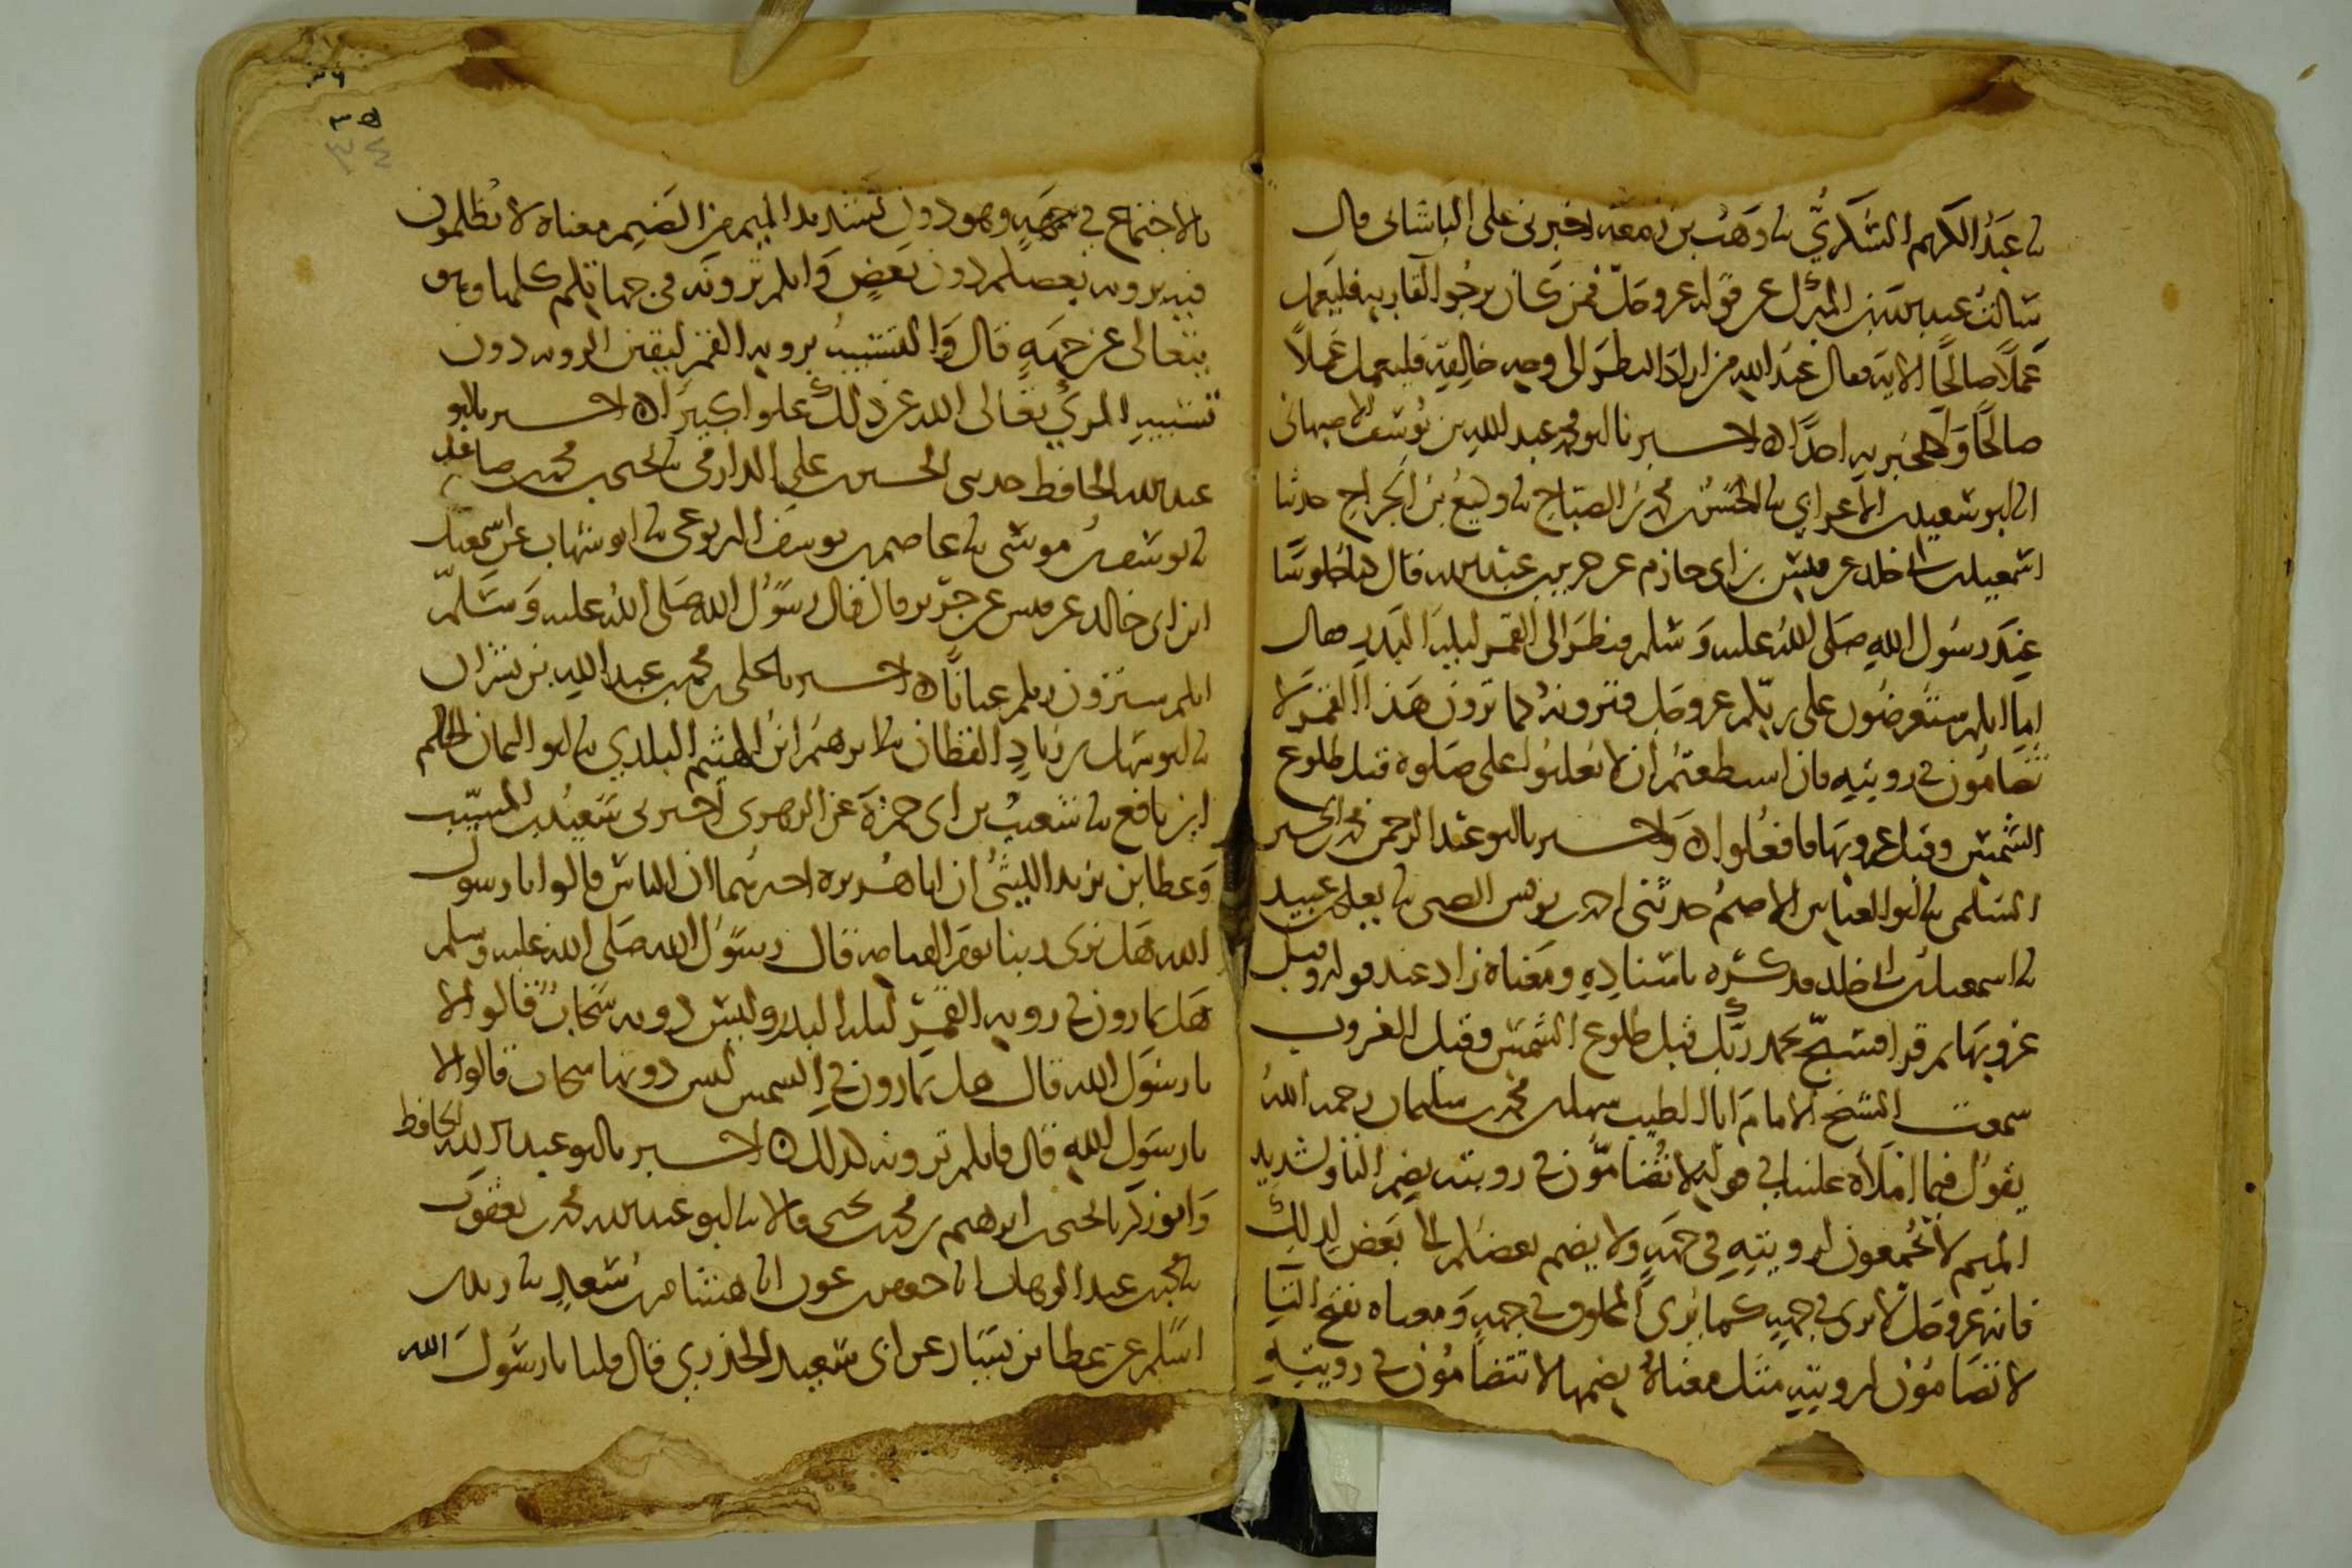 ثنا عبد الكريم السكري ثنا وهب بن زمعة اخبرني علي الباشاني قال
سالت عبد الله بن المبرك عن قوله عز وجل فمن كان يرجو لقا ربه فليعمل
عملا صالحا الاية فقال عبد الله من اراد النظر الى وجه خالقه فليعمل عملا
صالحا ولا يخبر به احدا ه اخبرنا ابو محمد عبد الله بن يوسف الاصبهاني
انا ابو سعيد بن الاعرابي ثنا الحسن بن محمد بن الصباح ثنا وكيع بن الجراح حدثنا
اسمعيل بن ابي خلد عن قيس بن ابي حازم عن جرير بن عبد الله قال كنا جلوسا
عند رسول الله صلى الله عليه وسلم فنظر الى القمر ليلة البدر فقال
اما انكم ستعرضون على ربكم عز وجل فترونه كما ترون هذا القمر لا
تضامون في رويته فان استطعتم ان لا تغلبوا على صلوة قبل طلوع
الشمس وقبل غروبها فافعلوا ه واخبرنا ابو عبد الرحمن محمد بن الحسين
السلمي ثنا ابو العباس الاصم حدثني احمد بن يونس الضبي ثنا يعلى بن عبيد
ثنا اسمعيل بن ابي خلد فذكره باسناده ومعناه زاد عند قوله وقبل
غروبها ثم قرا فسبح بحمد ربك قبل طلوع الشمس وقبل الغروب
سمعت الشيخ الامام ابا الطيب سهل بن محمد بن سليمان رحمه الله
يقول فيما املاه علينا في قوله لا تضامون في رويته بضم التا وتشديد
الميم لا تجتمعون لرويته في جهة ولا يضم بعضكم الى بعض لذلك
فانه عز وجل لا يرى في جهة كما يرى المخلوق في جهة ومعناه بفتح التا
لا تضامون لرويته مثل معناه بضمها لا تتضامون في رويته
٣٦
٣٥
بالاجتماع في جهة وهو دون تشديد الميم من الضيم معناه لا تظلمون
فيه برويته بعضكم دون بعض وانكم ترونه في جهاتكم كلها وهو
يتعالى عن جهة قال والتشبيه بروية القمر ليقين الروية دون
تشبيه المري تعالى الله عن ذلك علوا كبيرا ه اخبرنا ابو
عبد الله الحافظ حدثني الحسين بن علي الدارمي ثنا يحيى بن محمد بن صاعد
ثنا يوسف بن موسى ثنا عاصم بن يوسف اليربوعي ثنا ابو شهاب عن اسمعيل
ابن ابي خالد عن قيس عن جرير قال قال رسول الله صلى الله عليه وسلم
انكم سترون ربكم عيانا ه اخبرنا علي بن محمد بن عبد الله بن بشران
ثنا ابو سهل بن زياد القطان ثنا ابرهيم ابن الهيثم البلدي ثنا ابو اليمان الحكم
ابن نافع ثنا شعيب بن ابي حمزة عن الزهري اخبرني سعيد بن المسيب
وعطا بن يزيد الليثي ان ابا هريرة اخبرهما ان الناس قالوا يا رسول
الله هل نرى ربنا يوم القيامة قال رسول الله صلى الله عليه وسلم
هل تمارون في روية القمر ليلة البدر وليس دونه سحاب قالوا لا
يا رسول الله قال هل تمارون في الشمس ليس دونها سحاب قالوا لا
يا رسول الله قال فانكم ترونه كذلك ه اخبرنا ابو عبد الله الحافظ
وابو زكريا يحيى بن ابرهيم بن محمد بن يحيى قالا ثنا ابو عبد الله محمد بن يعقوب
ثنا محمد بن عبد الوهاب انا جعفر بن عون انا هشام بن سعد ثنا زيد بن
اسلم عن عطا بن يسار عن ابي سعيد الخدري قال قلنا يا رسول الله